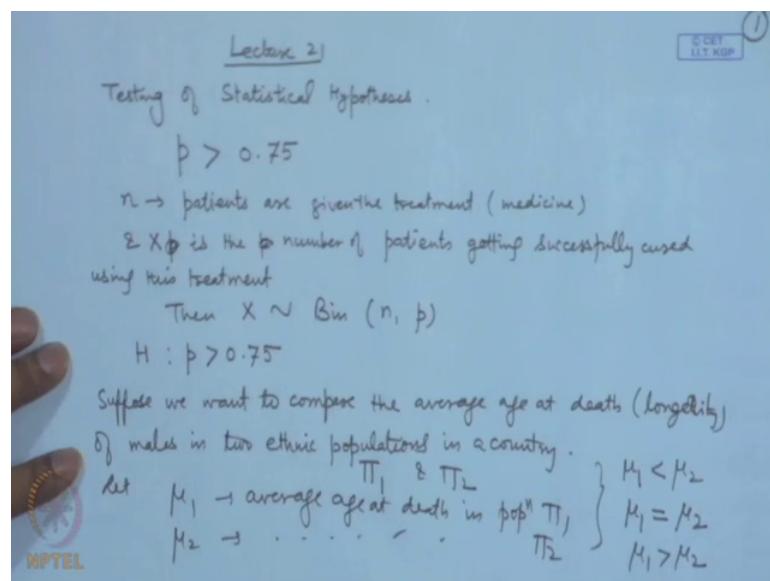 1
Lecture 21
© CET
I.I.T. KGP
Testing of Statistical Hypotheses.
p > 0.75
n → patients are given the treatment (medicine)
& X is the number of patients getting successfully cured
using this treatment
Then X ~ Bin (n, p)
H : p > 0.75
Suppose we want to compare the average age at death (longevity)
of males in two ethnic populations in a country.
Π₁ & Π₂
Let μ₁ → average age at death in popⁿ Π₁
μ₂ → . . . . . . . Π₂
μ₁ < μ₂
μ₁ = μ₂
μ₁ > μ₂
NPTEL